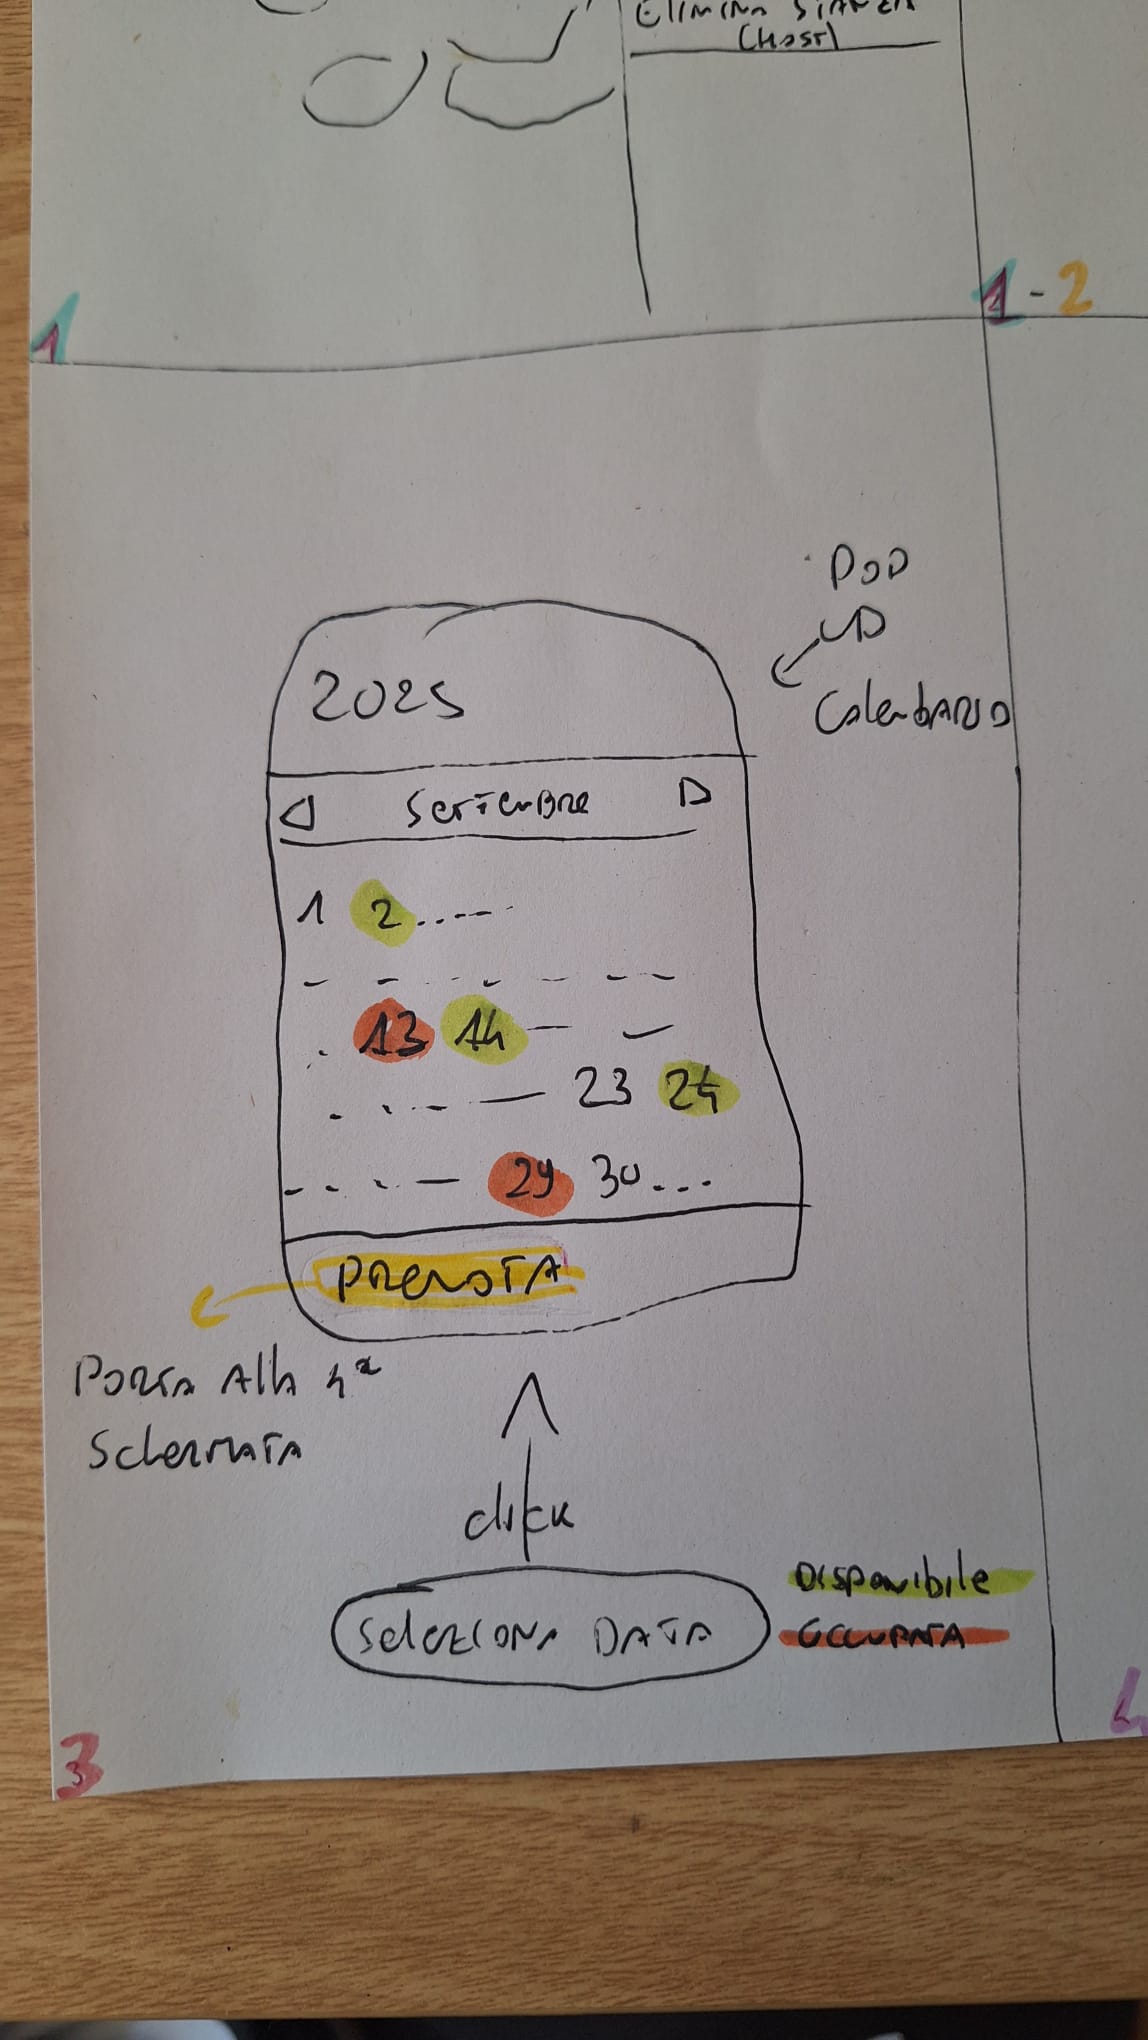 ELIMINA STANZA
(HOST)
1
1-2
POP
UP
Calendario
2025
Settembre
1 2.....
13 14
23 24
29 30...
PRENOTA
Porta Alla 4ª
Schermata
click
Seleziona DATA
Disponibile
OCCUPATA
3
4